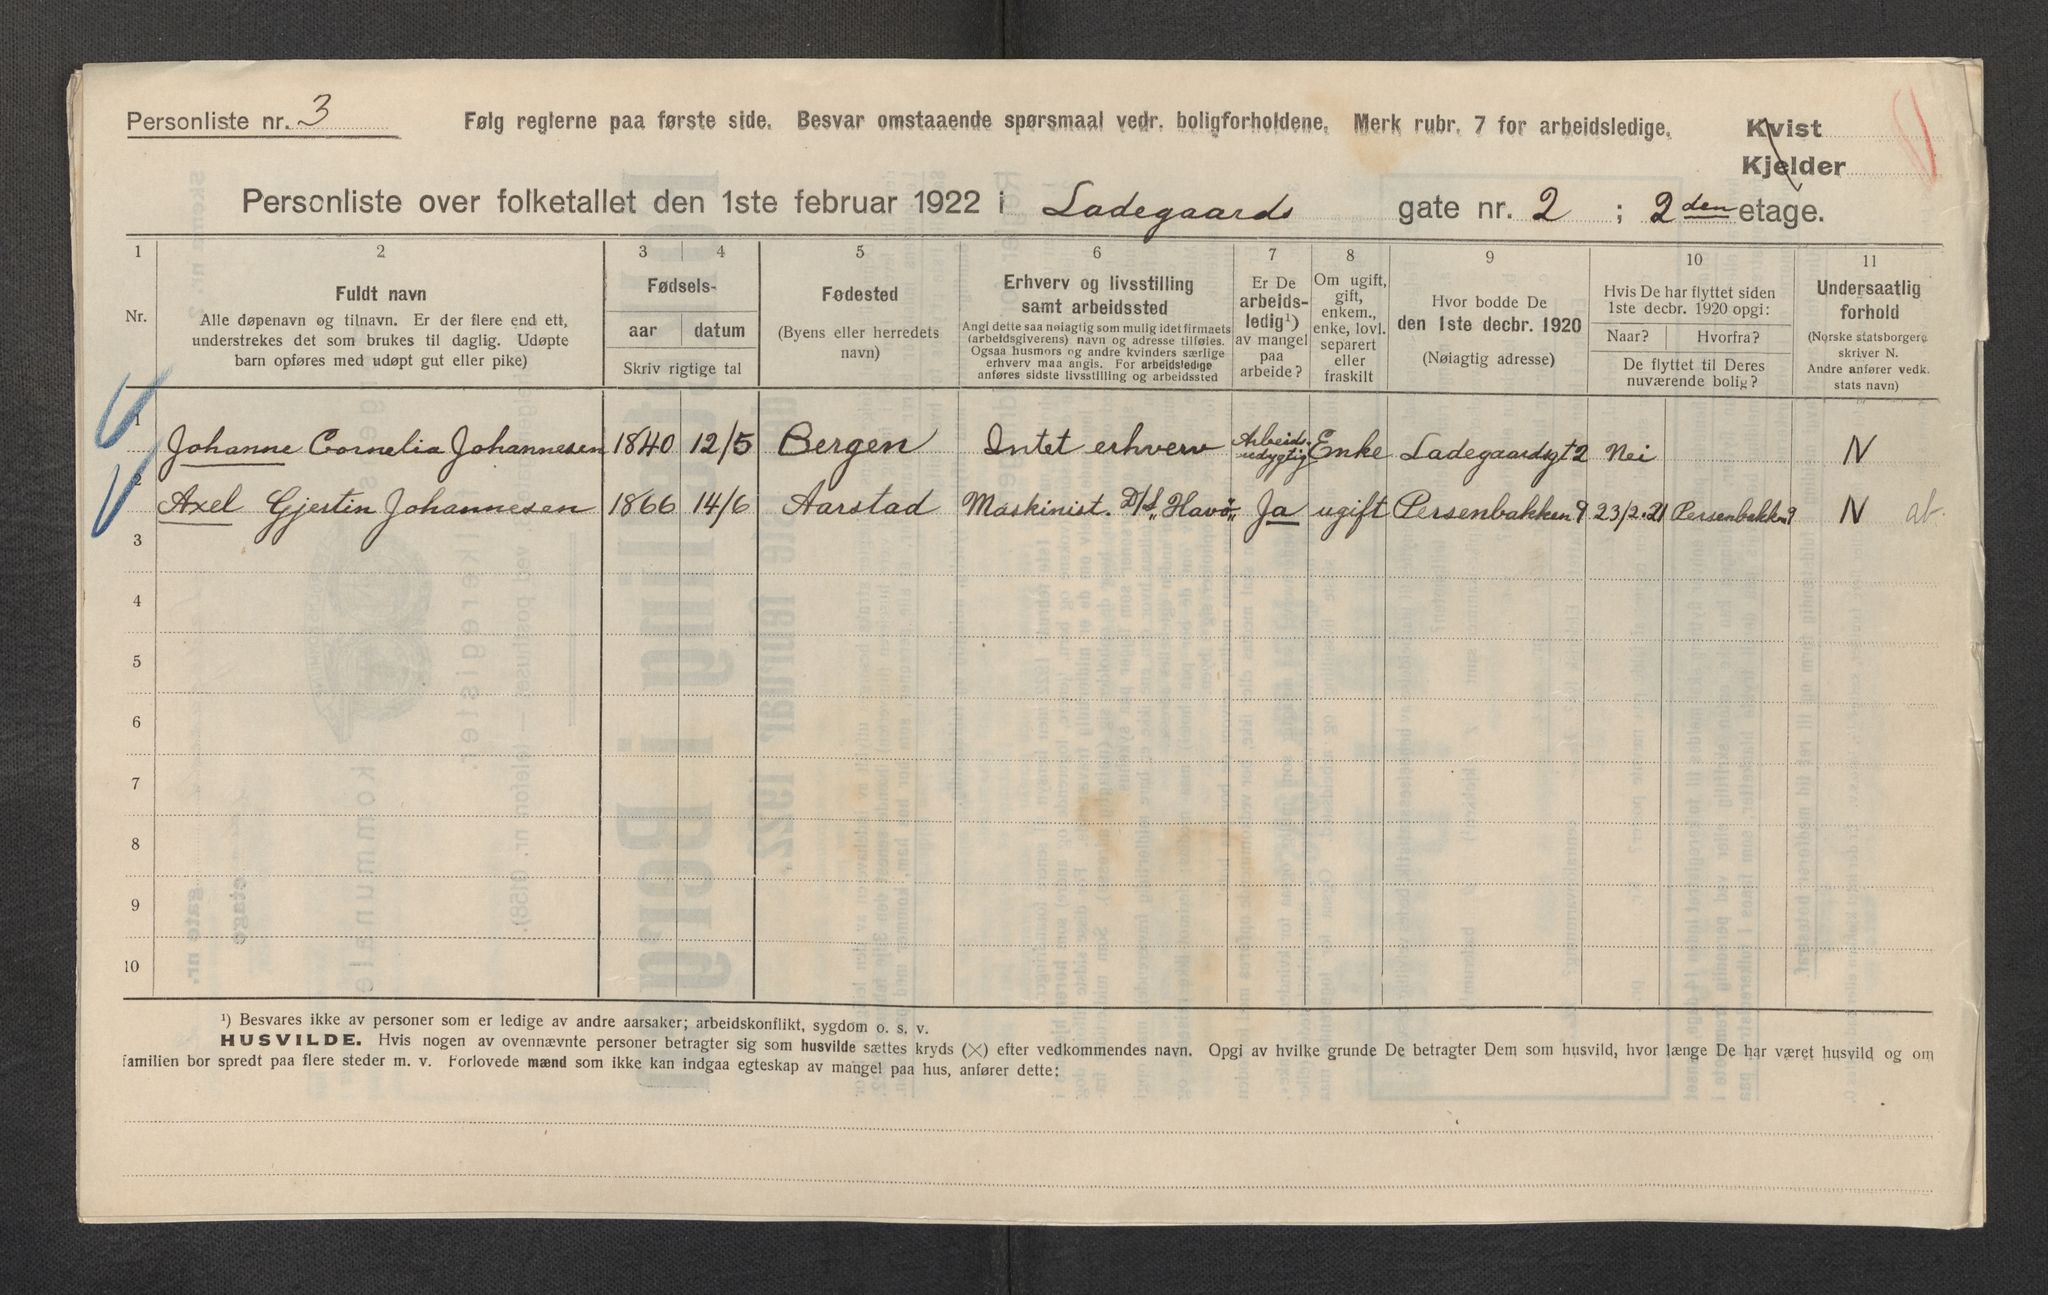 Personliste nr. 3
Følg reglerne paa første side. Besvar omstaaende spørsmaal vedr. boligforholdene. Merk rubr. 7 for arbeidsledige.
Kvist
Kjelder
Personliste over folketallet den 1ste februar 1922 i Ladegaards gate nr. 2 ; 2den etage.
1 2 3 4 5 6 7 8 9 10 11
Nr.
Fuldt navn
Alle døpenavn og tilnavn. Er der flere end ett,
understrekes det som brukes til daglig. Udøpte
barn opføres med udøpt gut eller pike)
Fødsels-
aar datum
Skriv rigtige tal
Fødested
(Byens eller herredets
navn)
Erhverv og livsstilling
samt arbeidssted
Angi dette saa nøiagtig som mulig idet firmaets
(arbeidsgiverens) navn og adresse tilføies.
Ogsaa husmors og andre kvinders særlige
erhverv maa angis. For arbeidsledige
anføres sidste livsstilling og arbeidssted
Er De
arbeids-
ledig¹)
av mangel
paa
arbeide?
Om ugift,
gift,
enkem.,
enke, lovl.
separert
eller
fraskilt
Hvor bodde De
den 1ste decbr. 1920
(Nøiagtig adresse)
Hvis De har flyttet siden
1ste decbr. 1920 opgi:
Naar? Hvorfra?
De flyttet til Deres
nuværende bolig?
Undersaatlig
forhold
(Norske statsborgere
skriver N.
Andre anfører vedk.
stats navn)
1 Johanne Cornelia Johannesen 1840 12/5 Bergen Intet erhverv Arbeids-udygtig Enke Ladegaardsgt 2 Nei N
2 Axel Gjertin Johannesen 1866 14/6 Aarstad Maskinist. D/S „Havø„ Ja ugift Persenbakken 9 23/2.21 Persenbakkn 9 N at.
3
4
5
6
7
8
9
10
¹) Besvares ikke av personer som er ledige av andre aarsaker; arbeidskonflikt, sygdom o. s. v.
HUSVILDE. Hvis nogen av ovennævnte personer betragter sig som husvilde sættes kryds (×) efter vedkommendes navn. Opgi av hvilke grunde De betragter Dem som husvild, hvor længe De har været husvild og om
familien bor spredt paa flere steder m. v. Forlovede mænd som ikke kan indgaa egteskap av mangel paa hus, anfører dette: